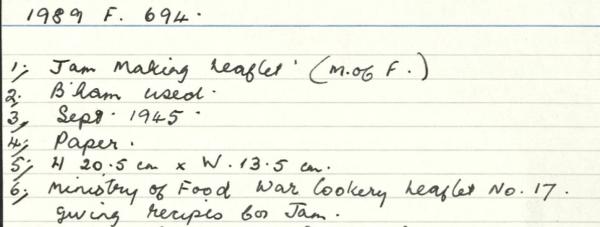 1989 F. 694.
1; Jam Making Leaflet' (M.of F.)
2. B'ham used.
3, Sept. 1945.
4; Paper.
5; H 20.5 cm x W. 13.5 cm.
6; Ministry of Food War Cookery Leaflet No. 17.
giving recipes for Jam.